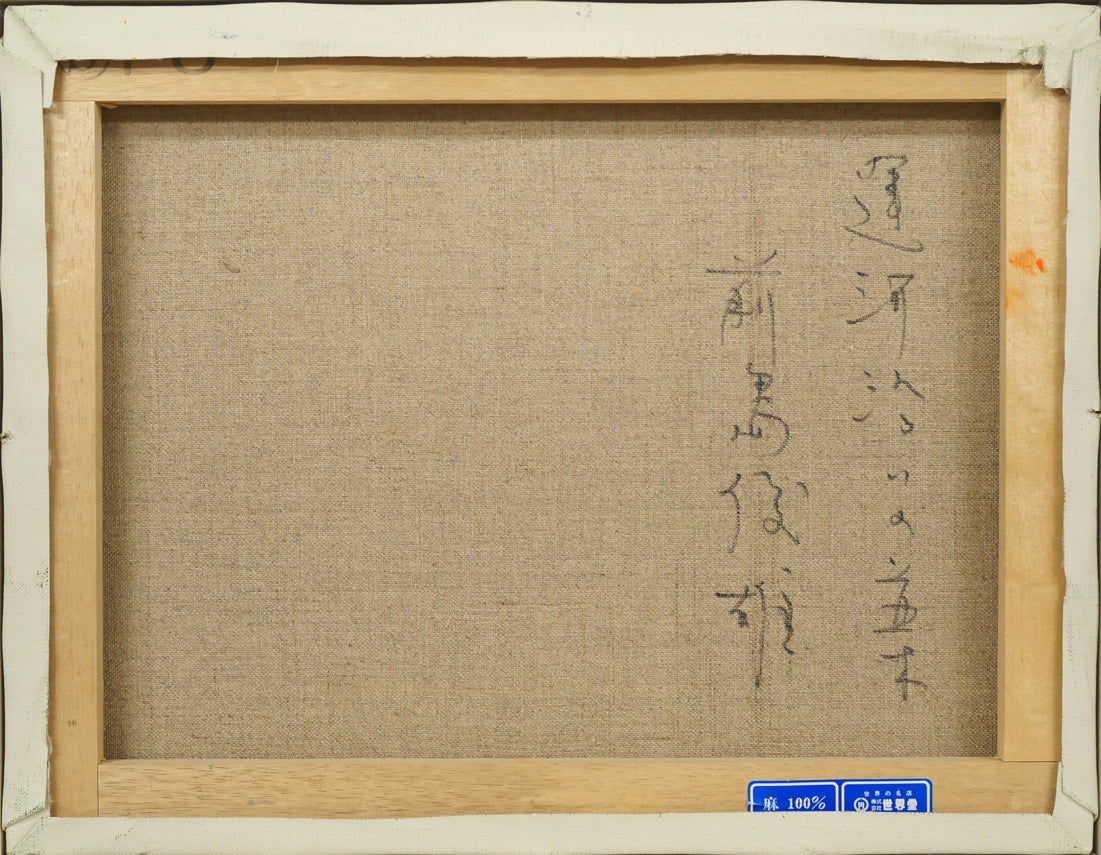 運河沿いの並木
前島俊雄
麻 100%
世界の名店
株式会社 世界堂